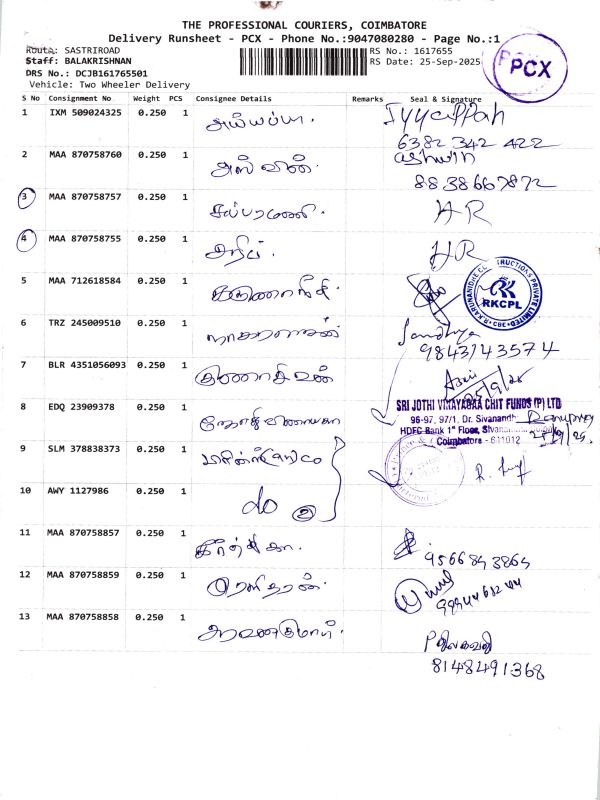 THE PROFESSIONAL COURIERS, COIMBATORE
Delivery Runsheet - PCX - Phone No.:9047080280 - Page No.:1
Route: SASTRIROAD
RS No.: 1617655
Staff: BALAKRISHNAN
RS Date: 25-Sep-2025
DRS No.: DCJB161765501
Vehicle: Two Wheeler Delivery
PCX
S No Consignment No. Weight PCS Consignee Details Remarks Seal & Signature
1 IXM 509024325 0.250 1 ஐயப்பா. Iyyappah
6382 342 422
2 MAA 870758760 0.250 1 அஸ்வின். ashwin
8838667872
3 MAA 870758757 0.250 1 HR
4 MAA 870758755 0.250 1 HR
5 MAA 712618584 0.250 1 கருணாநிதி.
KARUNANIDHI CONSTRUCTIONS PRIVATE LIMITED
RKCPL
6 TRZ 245009510 0.250 1 Sandhya
9843143574
7 BLR 4351056093 0.250 1 குணாசிவன்
25/9/25
8 EDQ 23909378 0.250 1
SRI JOTHI VINAYAGAA CHIT FUNDS (P) LTD
96-97, 97/1, Dr. Sivanandh
HDFC Bank 1st Floor,
Coimbatore - 611012
9 SLM 378838373 0.250 1
10 AWY 1127986 0.250 1 do 2
11 MAA 870758857 0.250 1 கீர்த்திகா.
9566843864
12 MAA 870758859 0.250 1
13 MAA 870758858 0.250 1 சரவணகுமார்.
P திலகவதி
8148491368